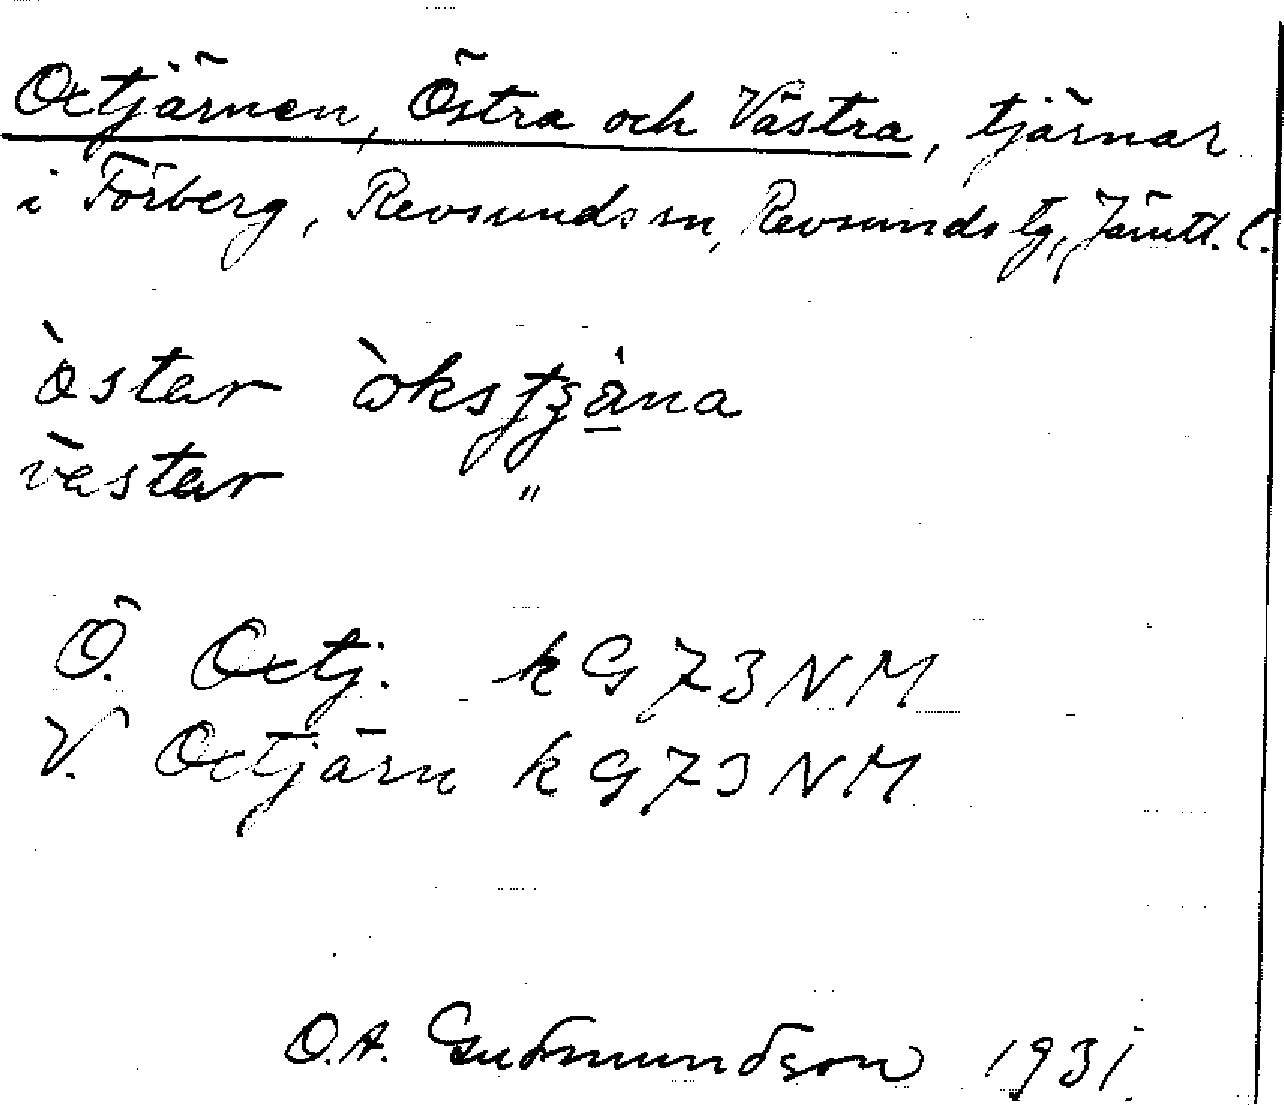 Octjärnen, Östra och Västra, tjärnar
i Förberg, Revsunds sn, Revsunds tg, Jämtl. l.
òstar òkstjäna
vèstar "
Ö. Octj. k G 73 N M
V. Octjärn k G 73 N M
O.A. Gudmundson 1931